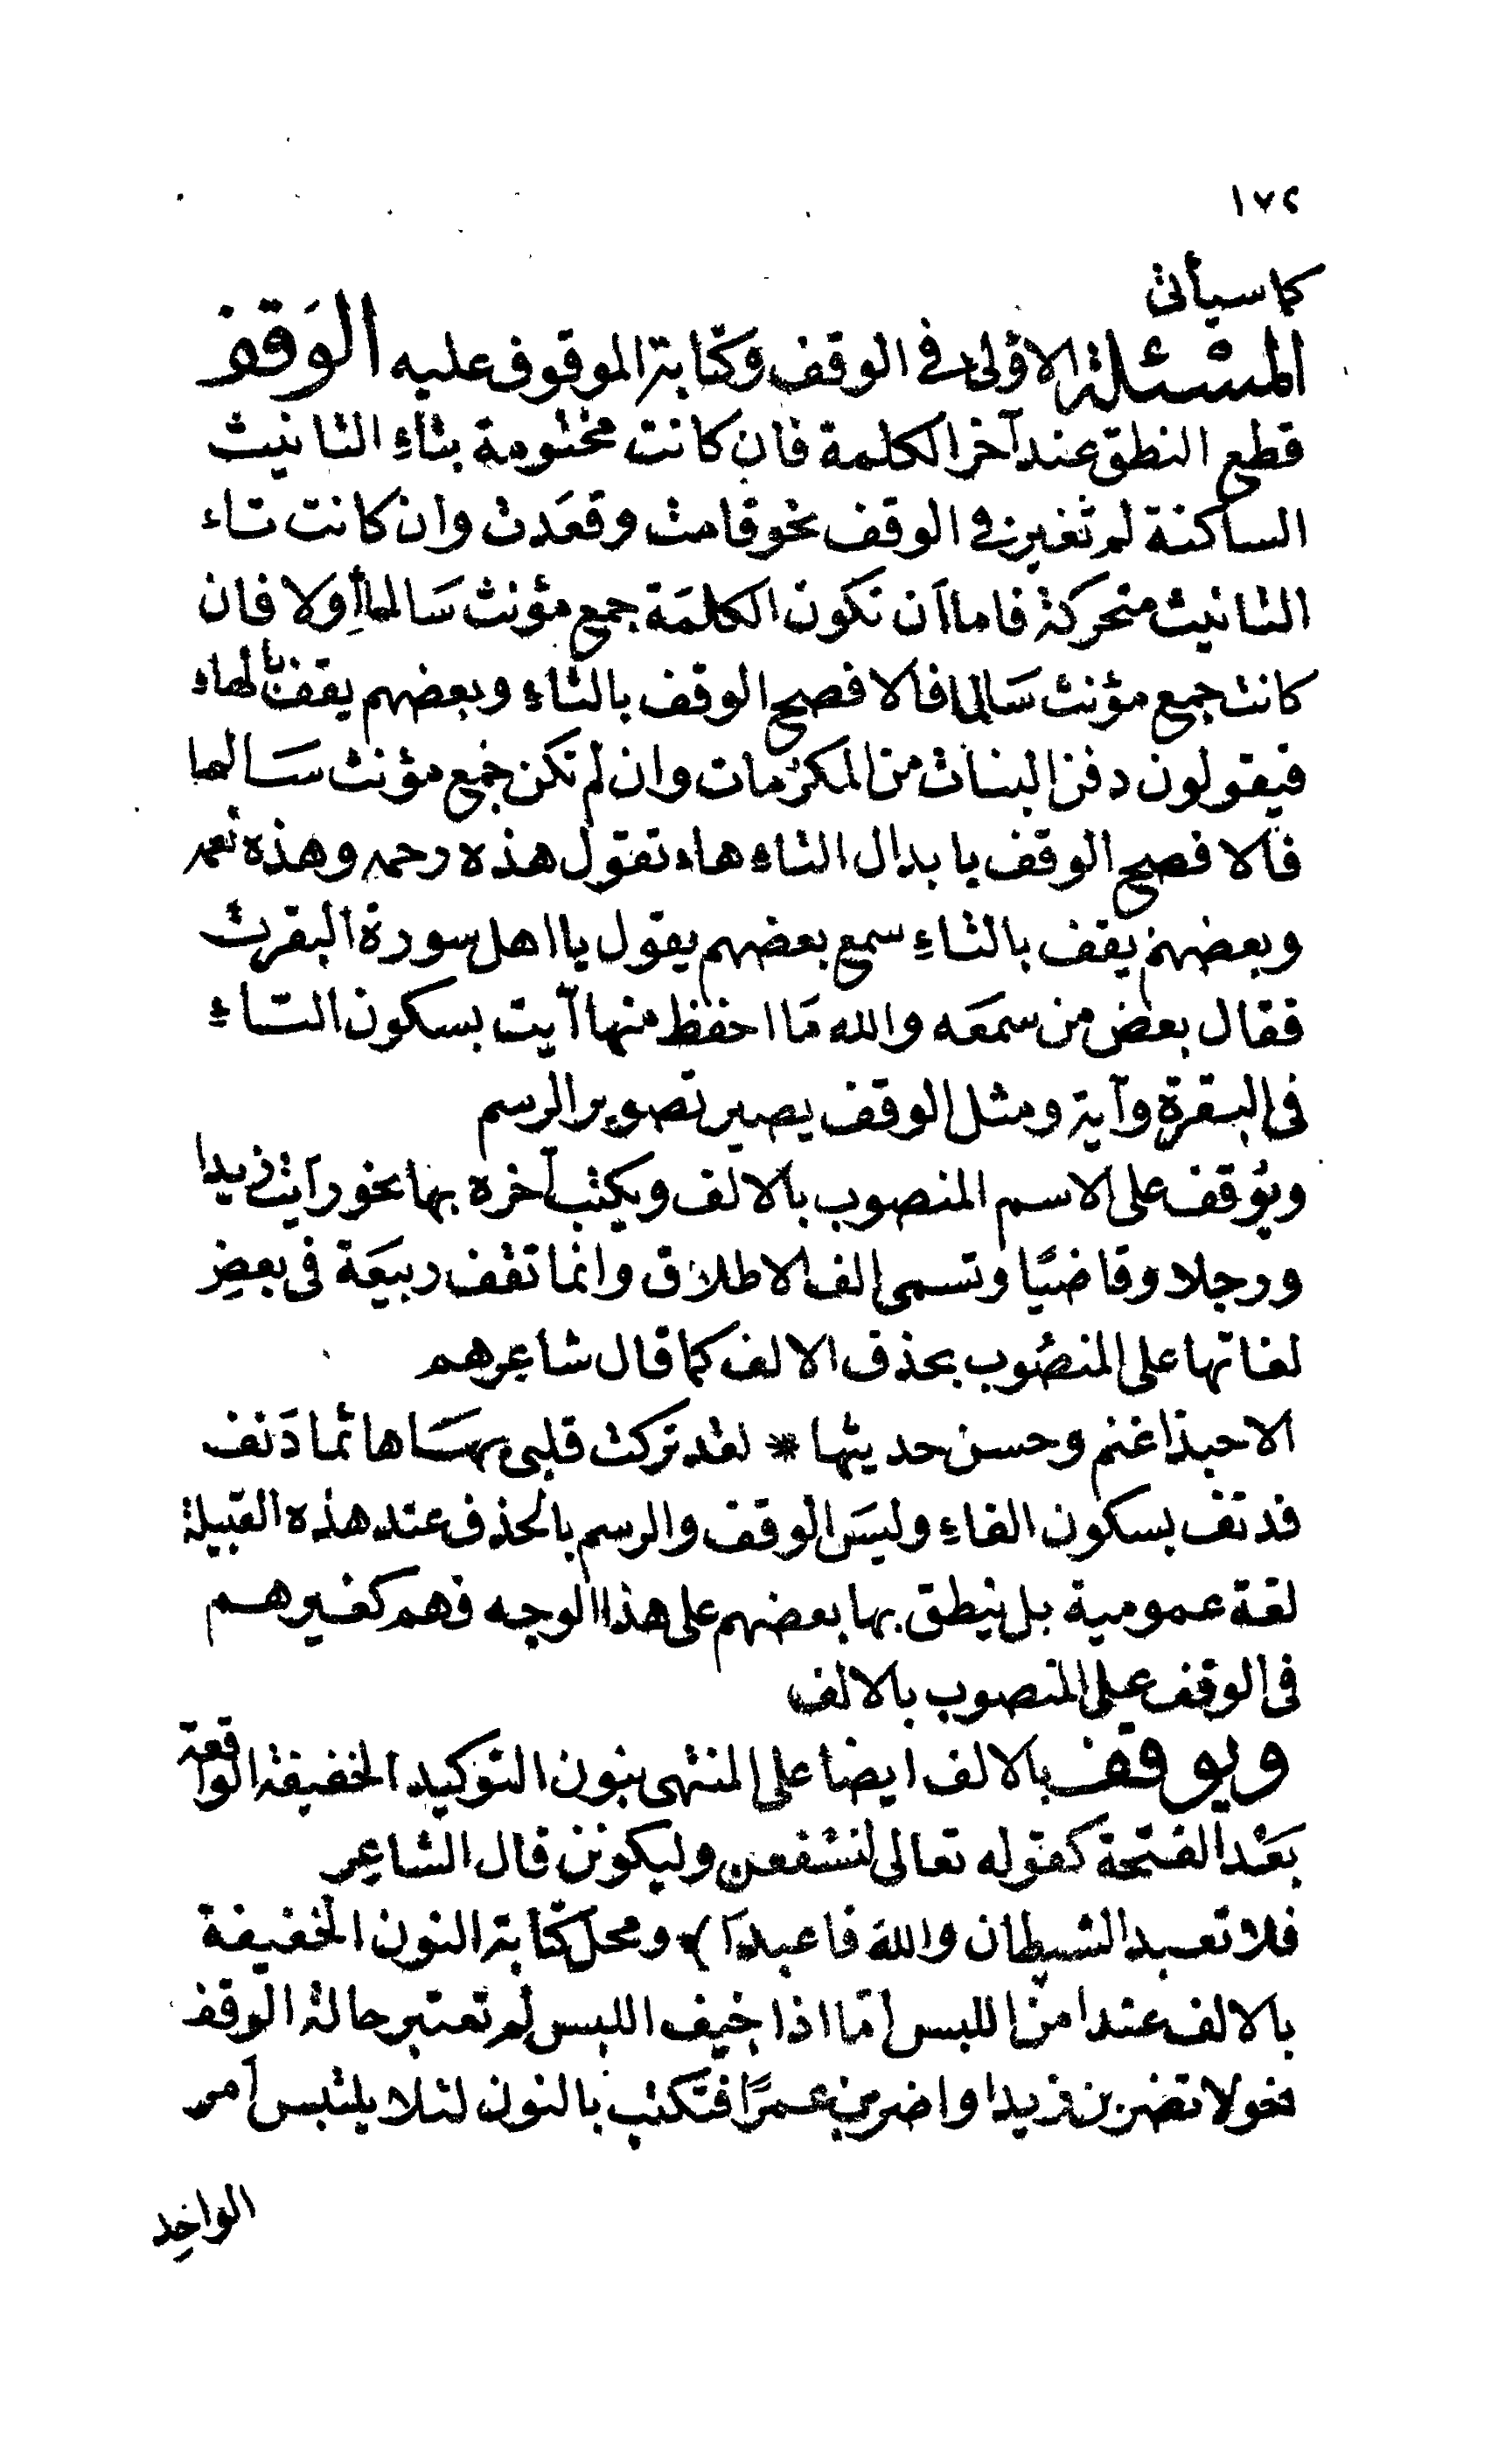 ١٧٢
كما سيأتى
المسئلة الاولى فى الوقف وكتابة الموقوف عليه الوَقف
قطع النطق عند آخر الكلمة فان كانت مختومة بتاءِ التانيث
الساكنة لم تغير فى الوقف نحو قامت وقعَدت وان كانت تاء
التانيث متحركة فاما اَن تكون الكلمَة جمع مؤنث سَالما أو لا فان
كانت جمع مؤنث سَالما فالافصح الوقف بالتاءِ وبعضهم يقف بالهاء
فيقولون دفن البناه من المكرماه وان لم تكن جمع مؤنث سَالما
فالافصح الوقف بابدال التاءِ هاء تقول هذه رحمه وهذه نعمه
وبعضهم يقف بالتاءِ سمع بعضهم يقول يا اهل سورة البقرت
فقال بعض من سمعَه والله مَا احفظ منها آيت بسكون التاءِ
فى البقرة وآية ومثل الوقف يصير تصوير الرسم
ويُوقف على الاسم المنصوب بالالف ويكتب آخره بها نحو رايت زيدا
ورجلا وقاضيًا وتسمى الف الاطلاق وانما تقف ربيعَة فى بعضِ
لغاتها على المنصُوب بحذف الالف كما قال شاعِرهم
الا حبذا غنم وحسن حديثها * لقد تركت قلبى بهَا هائما دَنف
فدنف بسكون الفاءِ وليسَ الوقف والرسم بالحذف عند هذه القبيلة
لغة عمومية بل ينطق بها بعضهم على هذا الوجه فهم كغيرهم
فى الوقف على المنصوب بالالف
ويوقف بالالف ايضا على المنتهى بنون التوكيد الخفيفة الواقعة
بَعْد الفتحة كقوله تعالى لنسفعن وليكونن قال الشاعِر
فلا تعبد الشيطان واللهَ فاعبدَا ) * ومحل كتابة النون الخفيفة
بالالف عند امن اللبس امّا اذا خيف اللبس لم تعتبر حالة الوقف
نحو لا تضربن زيدا واضربن عمرًا فتكتب بالنون لئلا يلتبس اَمر
الواحِد